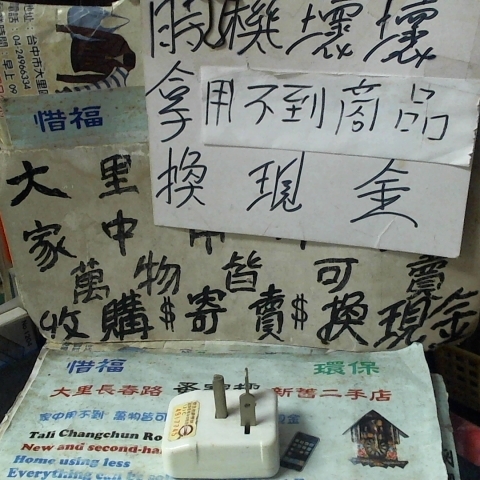 地址：台中市大里
電話：04 24966334
時間：早上 09
惜福
時機壞壞
拿用不到商品
換現金
大里
家中
萬物皆可賣
收購$寄賣$換現金
惜福 環保
大里長春路 新舊二手店
家中用不到 萬物皆可
Tali Changchun Ro
New and second-ha
Home using less
Everything can be